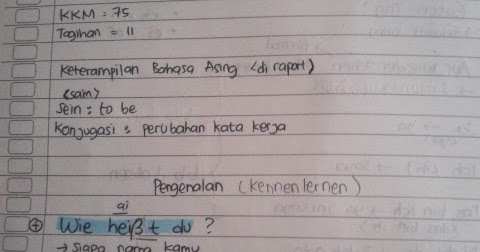 KKM = 75
Tagihan = 11
Keterampilan Bahasa Asing (di raport)
(sain)
Sein : to be
Konjugasi : perubahan kata kerja
Pengenalan (kennenlernen)
ai
Wie heißt du ?
→ siapa nama kamu